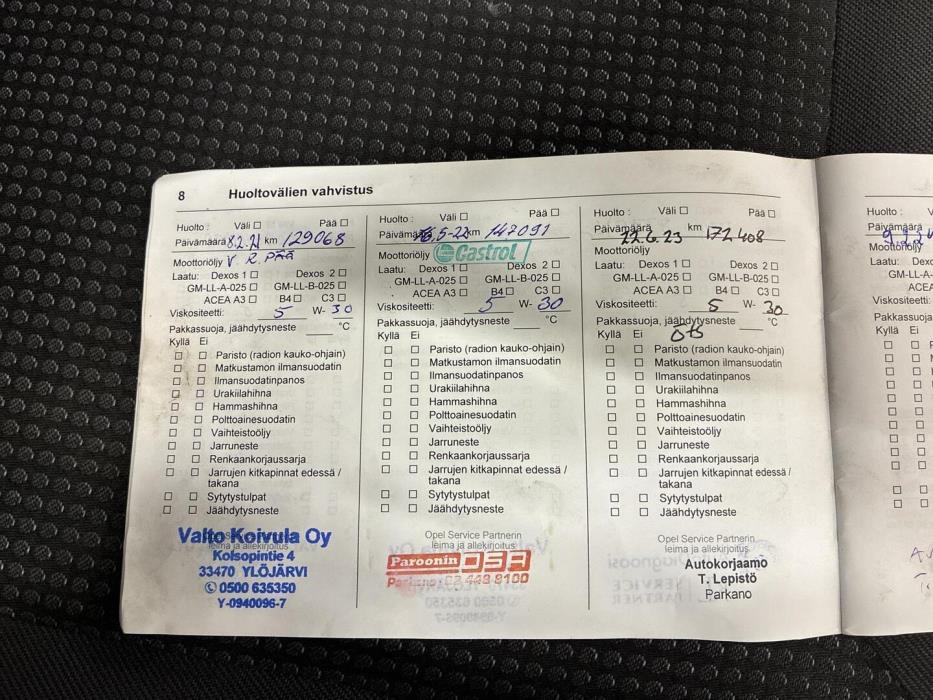 8 Huoltovälien vahvistus
Huolto : Väli ☐ Pää ☐
Päivämäärä 8.2.21 km 129068
Moottoriöljy V R. Pää
Laatu: Dexos 1 ☐ Dexos 2 ☐
GM-LL-A-025 ☐ GM-LL-B-025 ☐
ACEA A3 ☐ B4 ☐ C3 ☐
Viskositeetti: 5 W- 30
Pakkassuoja, jäähdytysneste °C
Kyllä Ei
☐ ☐ Paristo (radion kauko-ohjain)
☐ ☐ Matkustamon ilmansuodatin
☐ ☐ Ilmansuodatinpanos
☐ ☐ Urakiilahihna
☐ ☐ Hammashihna
☐ ☐ Polttoainesuodatin
☐ ☐ Vaihteistoöljy
☐ ☐ Jarruneste
☐ ☐ Renkaankorjaussarja
☐ ☐ Jarrujen kitkapinnat edessä /
takana
☐ ☐ Sytytystulpat
☐ ☐ Jäähdytysneste
leima ja allekirjoitus
Valto Koivula Oy
Kolsopintie 4
33470 YLÖJÄRVI
✆ 0500 635350
Y-0940096-7
Huolto : Väli ☐ Pää ☐
Päivämäärä 16,5-22 km 147091
Moottoriöljy Castrol
Laatu: Dexos 1 ☐ Dexos 2 ☐
GM-LL-A-025 ☐ GM-LL-B-025 ☐
ACEA A3 ☐ B4 ☐ C3 ☐
Viskositeetti: 5 W- 30
Pakkassuoja, jäähdytysneste °C
Kyllä Ei
☐ ☐ Paristo (radion kauko-ohjain)
☐ ☐ Matkustamon ilmansuodatin
☐ ☐ Ilmansuodatinpanos
☐ ☐ Urakiilahihna
☐ ☐ Hammashihna
☐ ☐ Polttoainesuodatin
☐ ☐ Vaihteistoöljy
☐ ☐ Jarruneste
☐ ☐ Renkaankorjaussarja
☐ ☐ Jarrujen kitkapinnat edessä /
takana
☐ ☐ Sytytystulpat
☐ ☐ Jäähdytysneste
Opel Service Partnerin
leima ja allekirjoitus
Paroonin OSA
Parkano 03 448 8100
Huolto : Väli ☐ Pää ☐
Päivämäärä 22.6.23 km 172408
Moottoriöljy
Laatu: Dexos 1 ☐ Dexos 2 ☐
GM-LL-A-025 ☐ GM-LL-B-025 ☐
ACEA A3 ☐ B4 ☐ C3 ☐
Viskositeetti: 5 W- 30
Pakkassuoja, jäähdytysneste °C
Kyllä Ei
☐ ☐ Paristo (radion kauko-ohjain)
☐ ☐ Matkustamon ilmansuodatin
☐ ☐ Ilmansuodatinpanos
☐ ☐ Urakiilahihna
☐ ☐ Hammashihna
☐ ☐ Polttoainesuodatin
☐ ☐ Vaihteistoöljy
☐ ☐ Jarruneste
☐ ☐ Renkaankorjaussarja
☐ ☐ Jarrujen kitkapinnat edessä /
takana
☐ ☐ Sytytystulpat
☐ ☐ Jäähdytysneste
Opel Service Partnerin
leima ja allekirjoitus
Autokorjaamo
T. Lepistö
Parkano
Huolto :
Päivämäärä
Moottoriöljy
Laatu:
Viskositeetti:
Pakkassuoja
Kyllä Ei